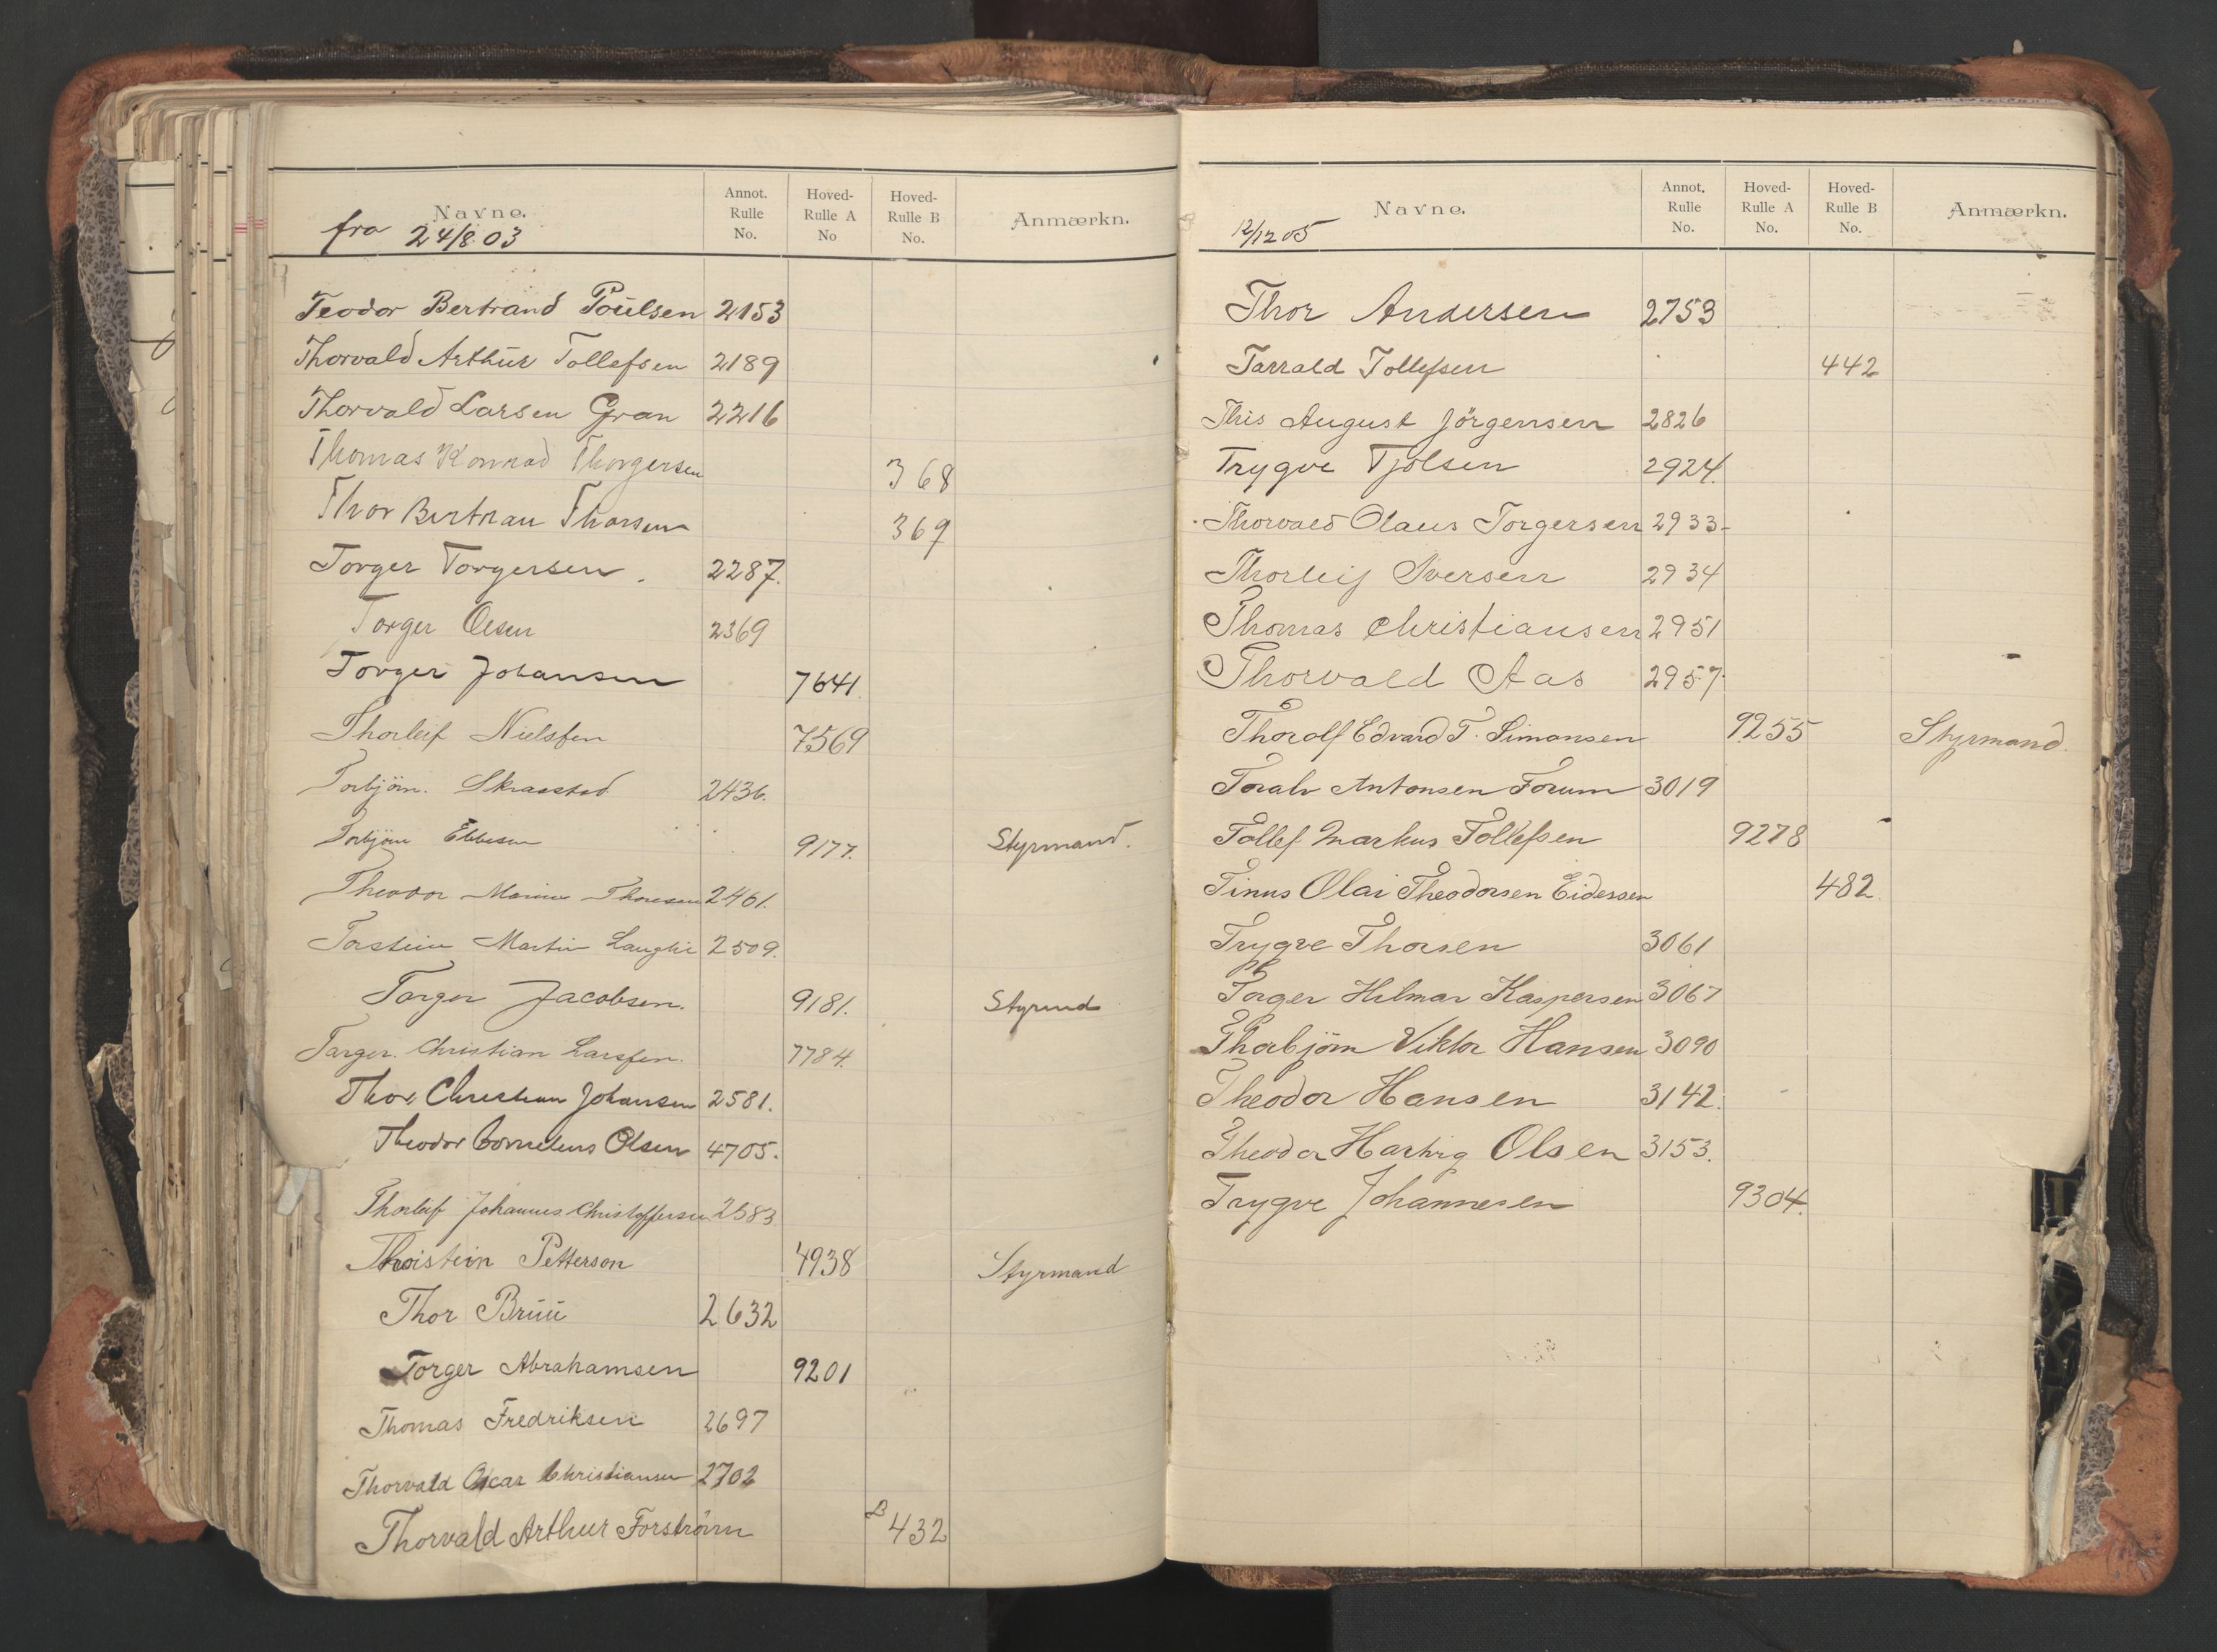 Navne.
fra 24/8 03
Annot. Rulle No.
Hoved-Rulle A No
Hoved-Rulle B No.
Anmærkn.
Teodor Bertrand Poulsen 2153
Thorvald Arthur Tollefsen 2189
Thorvald Larsen Gran 2216
Thomas Konrad Thorgersen 368
Thor Bertrau Thorsen 369
Torger Torgersen. 2287.
Torger Olsen 2369
Torger Johansen 7641.
Thorleif Nielsfen 7569
Torbjörn. Skraastad 2436.
Torbjörn Ebbesen 9177. Styrmand.
Theodor Marius Thoresen 2461.
Torstein Martin 2509.
Torger Jacobsen. 9181. Styrmd
Targer. Christian Larsfen. 7784.
Thor Christian Johansen 2581.
Theodor Cornelius Olsen 4705.
Thorleif Johannes Christoffersen 2583
Thorstein Petterson 4938 Styrmand
Thor Bruu 2632
Torger Abrahamsen 9201
Thomas Fredriksen 2697
Thorvald Oscar Christiansen 2702
Thorvald Arthur Forström B 432
Navne.
12/12 05
Annot. Rulle No.
Hoved-Rulle A No.
Hoved-Rulle B No.
Anmærkn.
Thor Andersen 2753
Tarrald Tollefsen 442
This August Jörgensen 2826
Trygve Tjölsen 2924.
Thorvald Olaus Torgersen 2933-
Thorleif Iversen 2934
Thomas Christiansen 2951
Thorvald Aas 2957.
Thorolf Edvard T. Simonsen 9255 Styrmand.
Toralv Antonsen Forum 3019
Tollef Markus Tollefsen 9278
Tinus Olai Theodorsen Eidersen 482.
Trygve Thorsen 3061
Torger Hilmar Kaspersen 3067
Thorbjörn Viktor Hansen 3090
Theodor Hansen 3142.
Theodor Hartvig Olsen 3153.
Trygve Johannesen 9304.